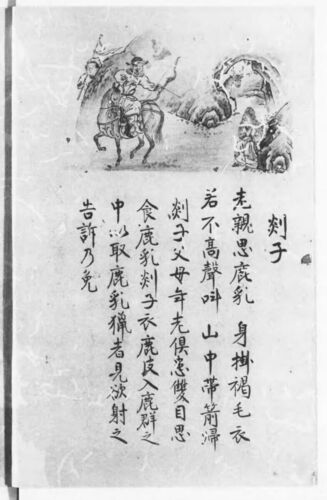 剡子
老親思鹿乳 身掛褐毛衣
若不高聲呌 山中帶箭歸
剡子父母年老俱患雙目思
食鹿乳剡子衣鹿皮入鹿群之
中以取鹿乳獵者見欲射之
告訴乃免